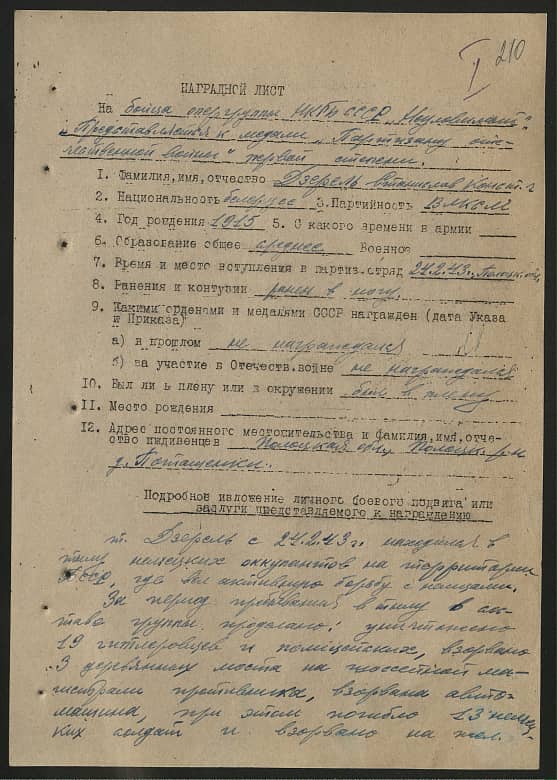 210
НАГРАДНОЙ ЛИСТ
На бойца опергруппы НКГБ СССР "Неуловимые"
Представляется к медали "Партизану оте-
чественной войны" первой степени.
1. Фамилия, имя, отчество Дзерель Станислав Конст.
2. Национальность белорусс 3. Партийность ВЛКСМ
4. Год рождения 1915 5. С какого времени в армии
6. Образование общее среднее Военное
7. Время и место вступления в партиз.отряд 24.2.43г. Полоцк. обл.
8. Ранения и контузии ранен в ногу.
9. Какими орденами и медалями СССР награжден (дата Указа
и Приказа)
а) в прошлом не награждался
б) за участие в Отечеств.войне не награждался
10. Был ли в плену или в окружении был в плену
11. Место рождения
12. Адрес постоянного местожительства и фамилия,имя,отче-
ство иждивенцев Полоцкая обл. Полоцк. р-н
д. Поташенки.
Подробное изложение личного боевого подвига или
заслуги представляемого к награждению
т. Дзерель с 24.2.43г. находился в
тылу немецких оккупантов на территории
БССР, где вел активную борьбу с немцами.
За период пребывания в тылу в сос-
таве группы проделано: уничтожено
19 гитлеровцев и полицейских, взорвано
3 деревянных моста на шоссейной ма-
гистрали противника, взорвана авто-
машина, при этом погибло 13 немец-
ких солдат и взорвано на жел.